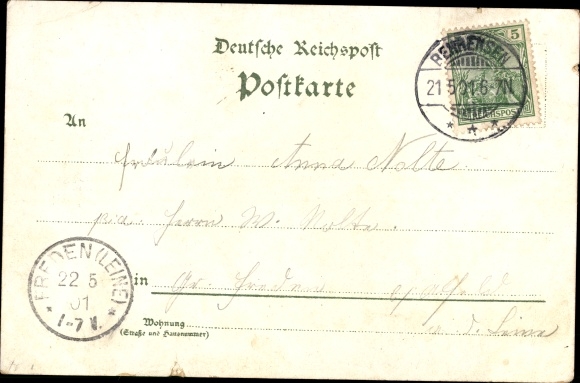 Deutsche Reichspost
Postkarte
5
BEHRENSEN
21 5 01 6-7N
* * *
An
Fräulein Anna Nolte.
Herrn W. Nolte.
in Gr. Freden
a. d. Leine
Wohnung
(Straße und Hausnummer)
* FREDEN (LEINE) *
22 5
01
1-7 V.